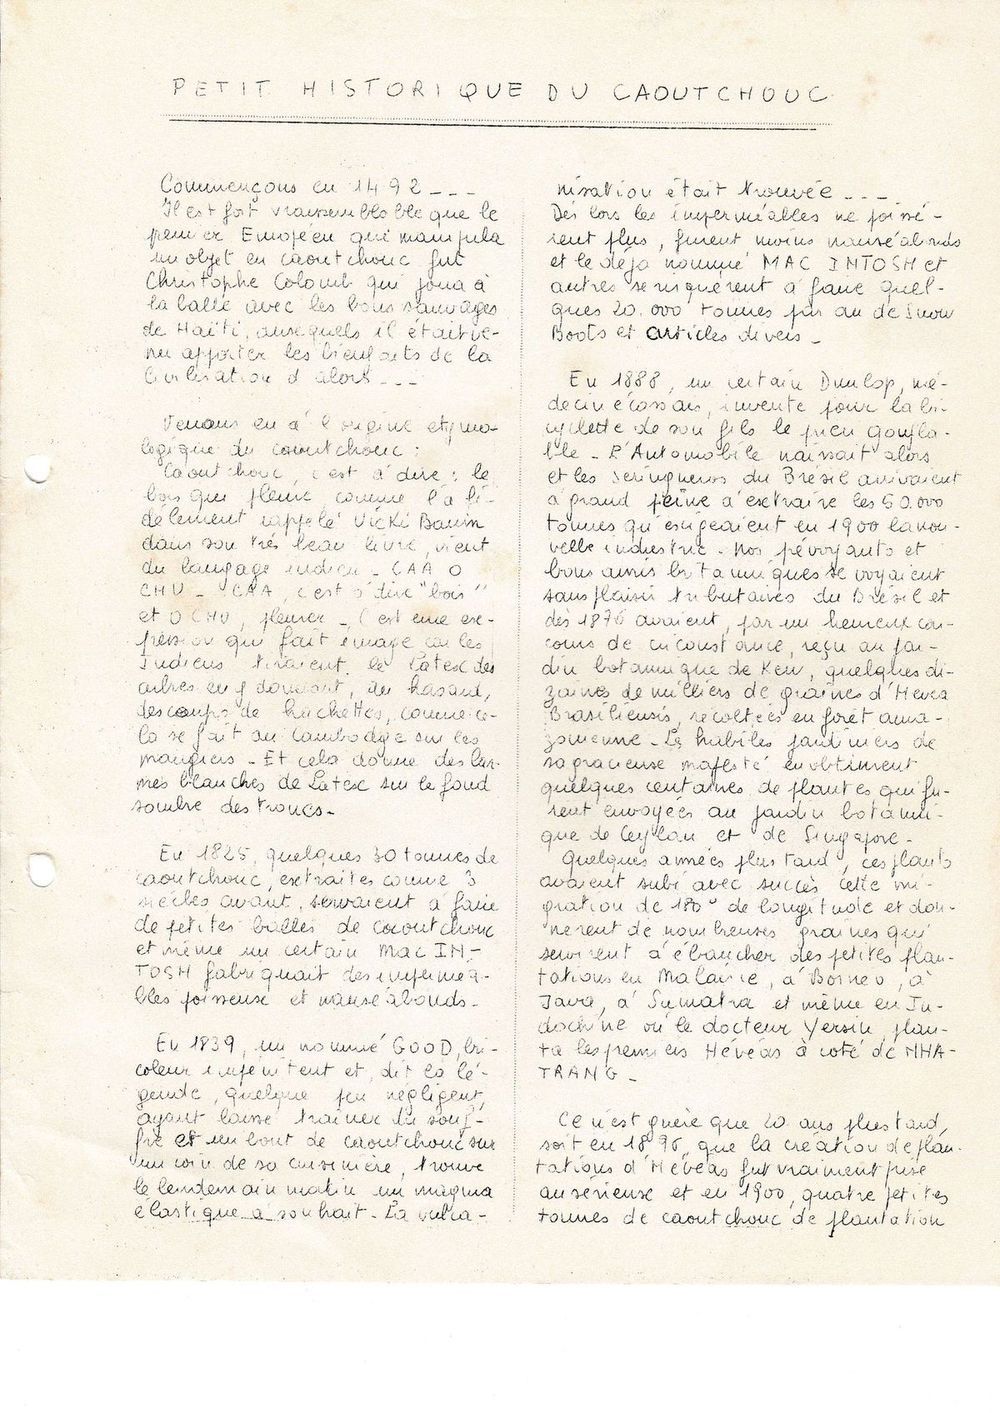 PETIT HISTORIQUE DU CAOUTCHOUC
Commençons en 1492 - - -
Il est fort vraissemblable que le
premier Européen qui manipula
un objet en caoutchouc fut
Christophe Colomb qui joua à
la balle avec les bons sauvages
de Haïti, auxquels il était ve-
nu apporter les bienfaits de la
Civilisation d'alors - - -
Venons en à l'origine etymo-
logique du caoutchouc :
Caoutchouc, c'est à dire : le
bois qui pleure comme l'a fi-
dèlement rappelé Vicki Baum
dans son très beau livre, vient
du langage indien - CAA O
CHU - CAA, c'est à dire "bois"
et OCHU, pleurer - C'est une ex-
pression qui fait image car les
Indiens tiraient le latex des
arbres en y donnant, au hasard,
des coups de hachettes, comme ce-
la se fait au Cambodge sur les
manguiers - Et cela donne des lar-
mes blanches de Latex sur le fond
sombre des troncs -
En 1825, quelques 30 tonnes de
caoutchouc, extraites comme 3
siècles avant, servaient à faire
de petites balles de caoutchouc
et même un certain Mac IN-
TOSH fabriquait des imperméa-
bles poisseux et nauséabonds -
En 1839, un nommé GOOD, bri-
coleur impénitent et, dit la lé-
gende, quelque peu négligent,
ayant laissé trainer du souf-
fre et un bout de caoutchouc sur
un coin de sa cuisinière, trouve
le lendemain matin un magma
élastique à souhait - La vulca-
nisation était trouvée - - -
Dès lors les imperméables ne poissè-
rent plus, furent moins nauséabonds
et le déjà nommé MAC INTOSH et
autres se risquèrent à faire quel-
ques 20.000 tonnes par an de Snow
Boots et articles divers -
En 1888, un certain Dunlop, mé-
decin écossais, invente pour la bi-
cyclette de son fils le pneu gonfla-
ble - L'Automobile naissait alors
et les seringueros du Brésil arrivaient
à grand peine à extraire les 50.000
tonnes qu'exigeaient en 1900 la nou-
velle industrie - Nos prévoyants et
bons amis britanniques se voyaient
sans plaisir tributaires du Brésil et
dès 1876 avaient, par un heureux con-
cours de circonstance, reçu au jar-
din botannique de Kew, quelques di-
zaines de milliers de graines d'Hevea
Brasiliensis, récoltées en forêt ama-
zonienne - Les habiles jardiniers de
sa gracieuse majesté en obtinrent
quelques centaines de plantes qui fu-
rent envoyées au jardin botanni-
que de Ceylan et de Singapore -
Quelques années plus tard, ces plants
avaient subi avec succès cette mi-
gration de 180° de longitude et don-
nèrent de nombreuses graines qui
servirent à ébaucher des petites plan-
tations en Malaisie, à Borneo, à
Java, à Sumatra et même en In-
dochine où le docteur Yersin, plan-
ta les premiers Hévéas à coté de NHA-
TRANG -
Ce n'est guère que 20 ans plus tard,
soit en 1896, que la création de plan-
tations d'Hévéas fut vraiment prise
au sérieuse et en 1900, quatre petites
tonnes de caoutchouc de plantation